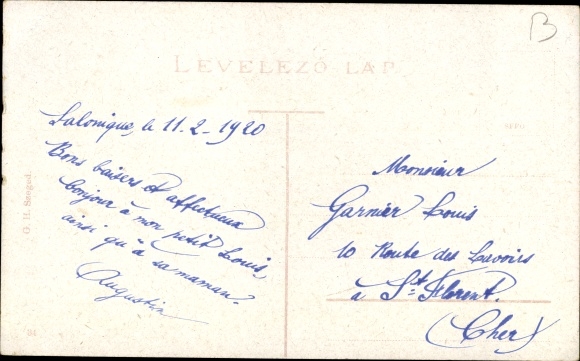 B
LEVELEZŐ LAP
Salonique, le 11-2-1920
Bons baisers et affectueux
bonjour à mon petit Louis,
ainsi qu'à sa maman.
Augustin
Monsieur
Garnier Louis
10 Route des Lavoirs
à St Florent.
(Cher)
G. H. Szeged.
31